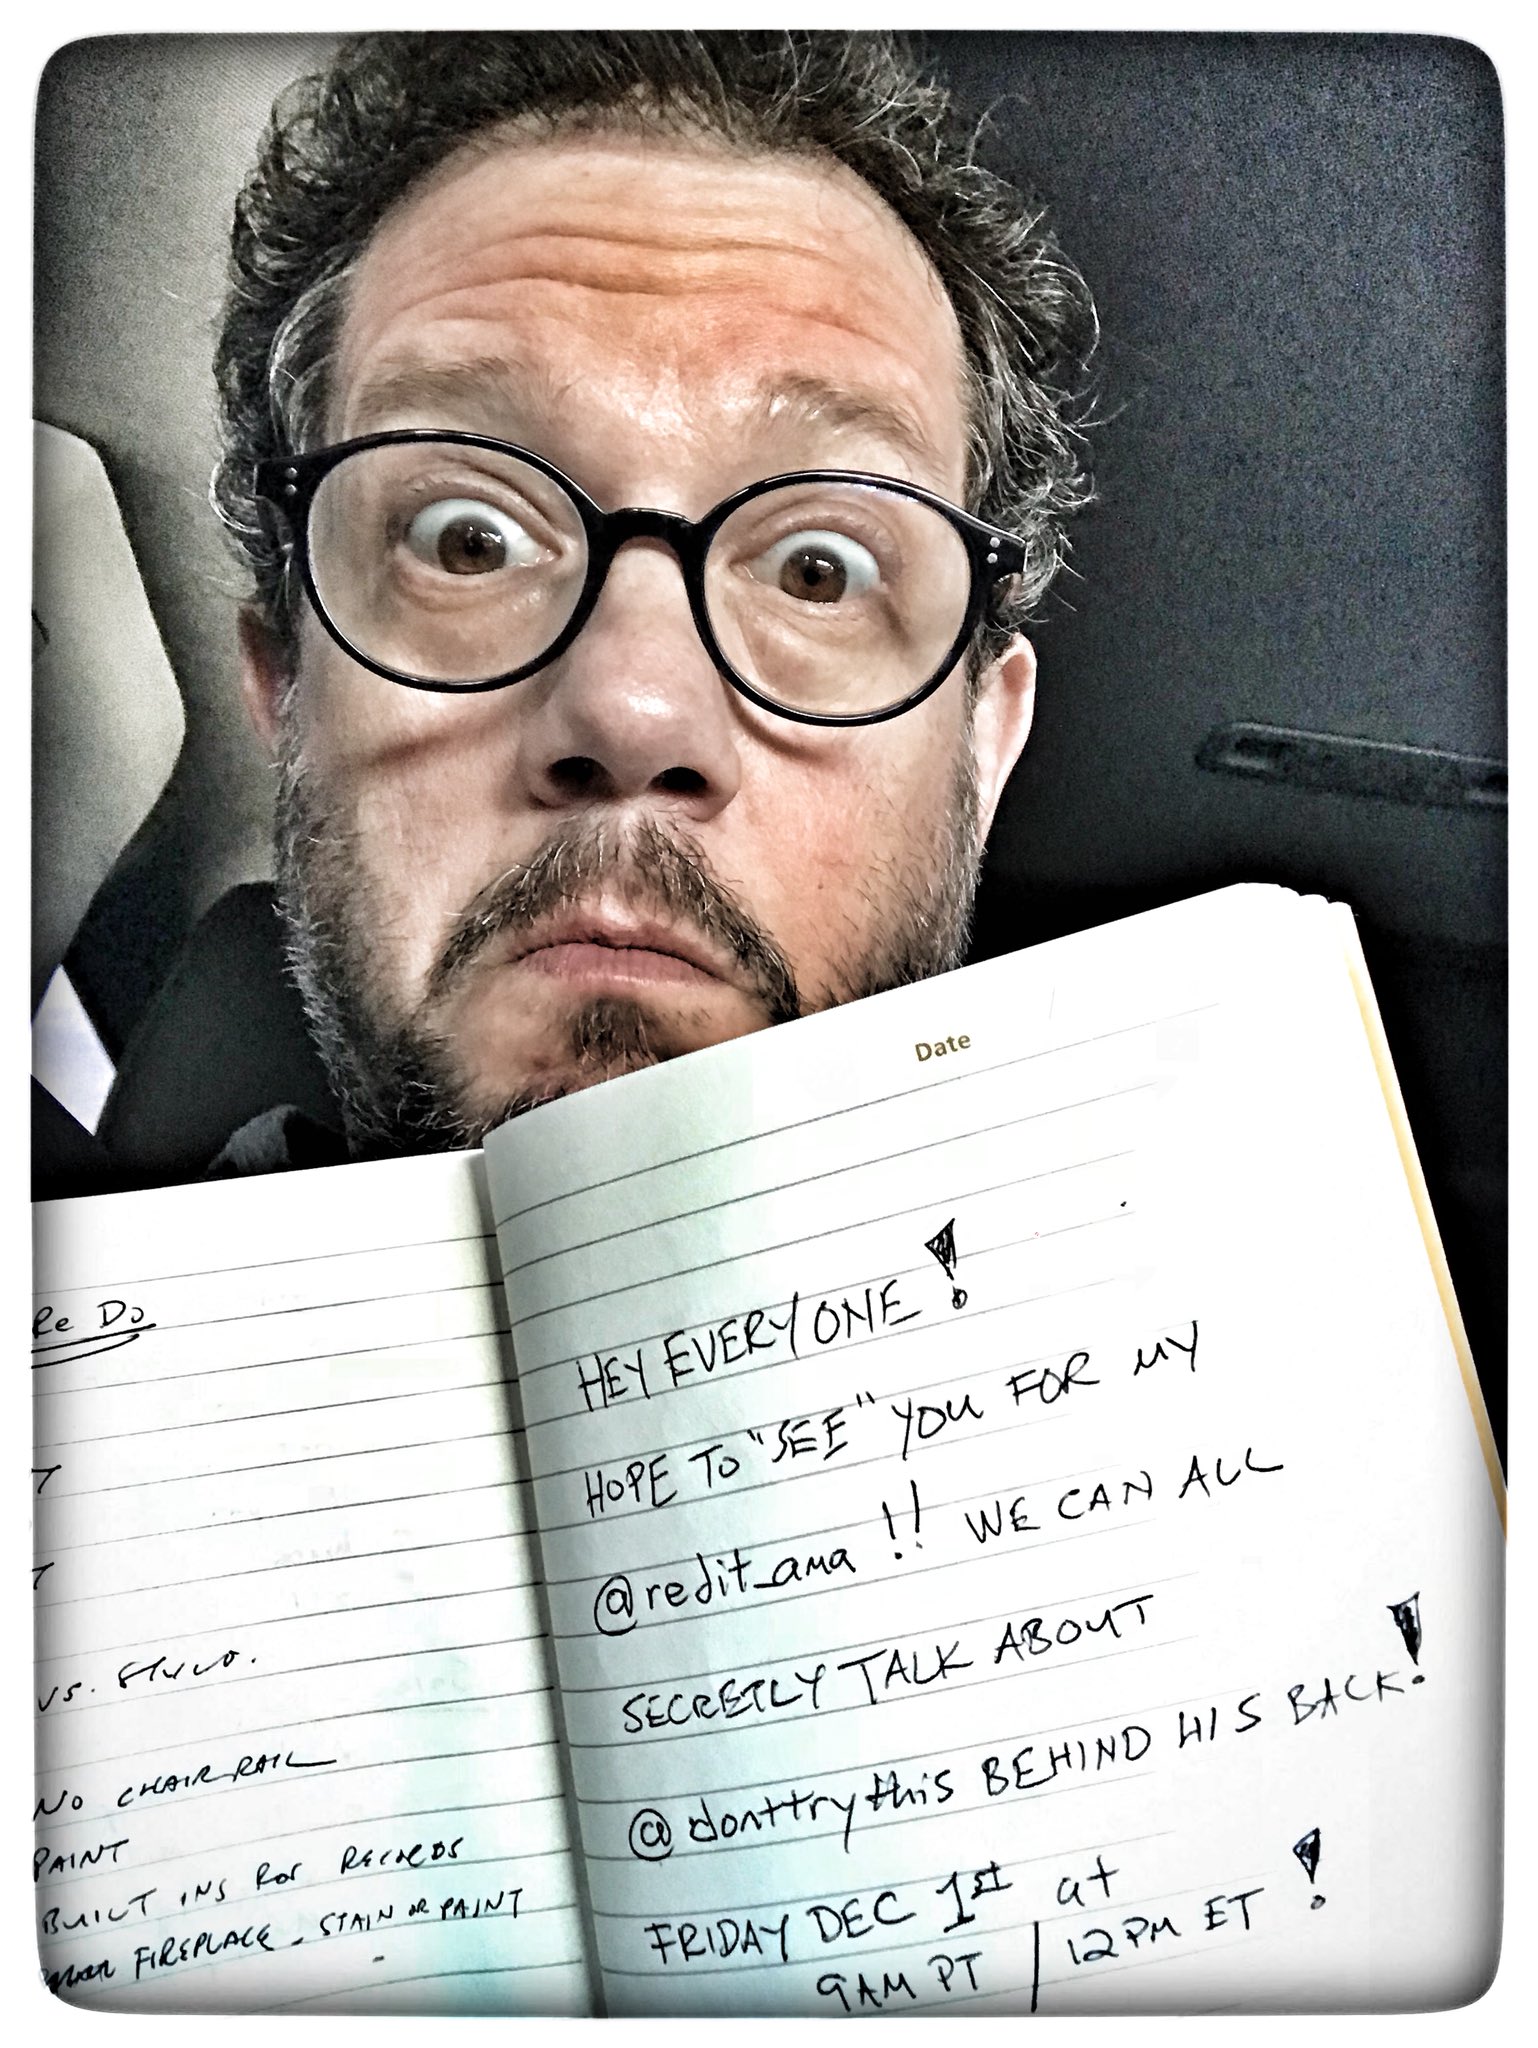 Re Do
vs. Stuco.
NO CHAIR RAIL
PAINT
BUILT INS For RECORDS
FIREPLACE - STAIN or PAINT
Date
HEY EVERYONE!
HOPE TO "SEE" YOU FOR MY
@redit_ama!! WE CAN ALL
SECRETLY TALK ABOUT
@donttrythis BEHIND HIS BACK!
FRIDAY DEC 1st at
9AM PT / 12PM ET!